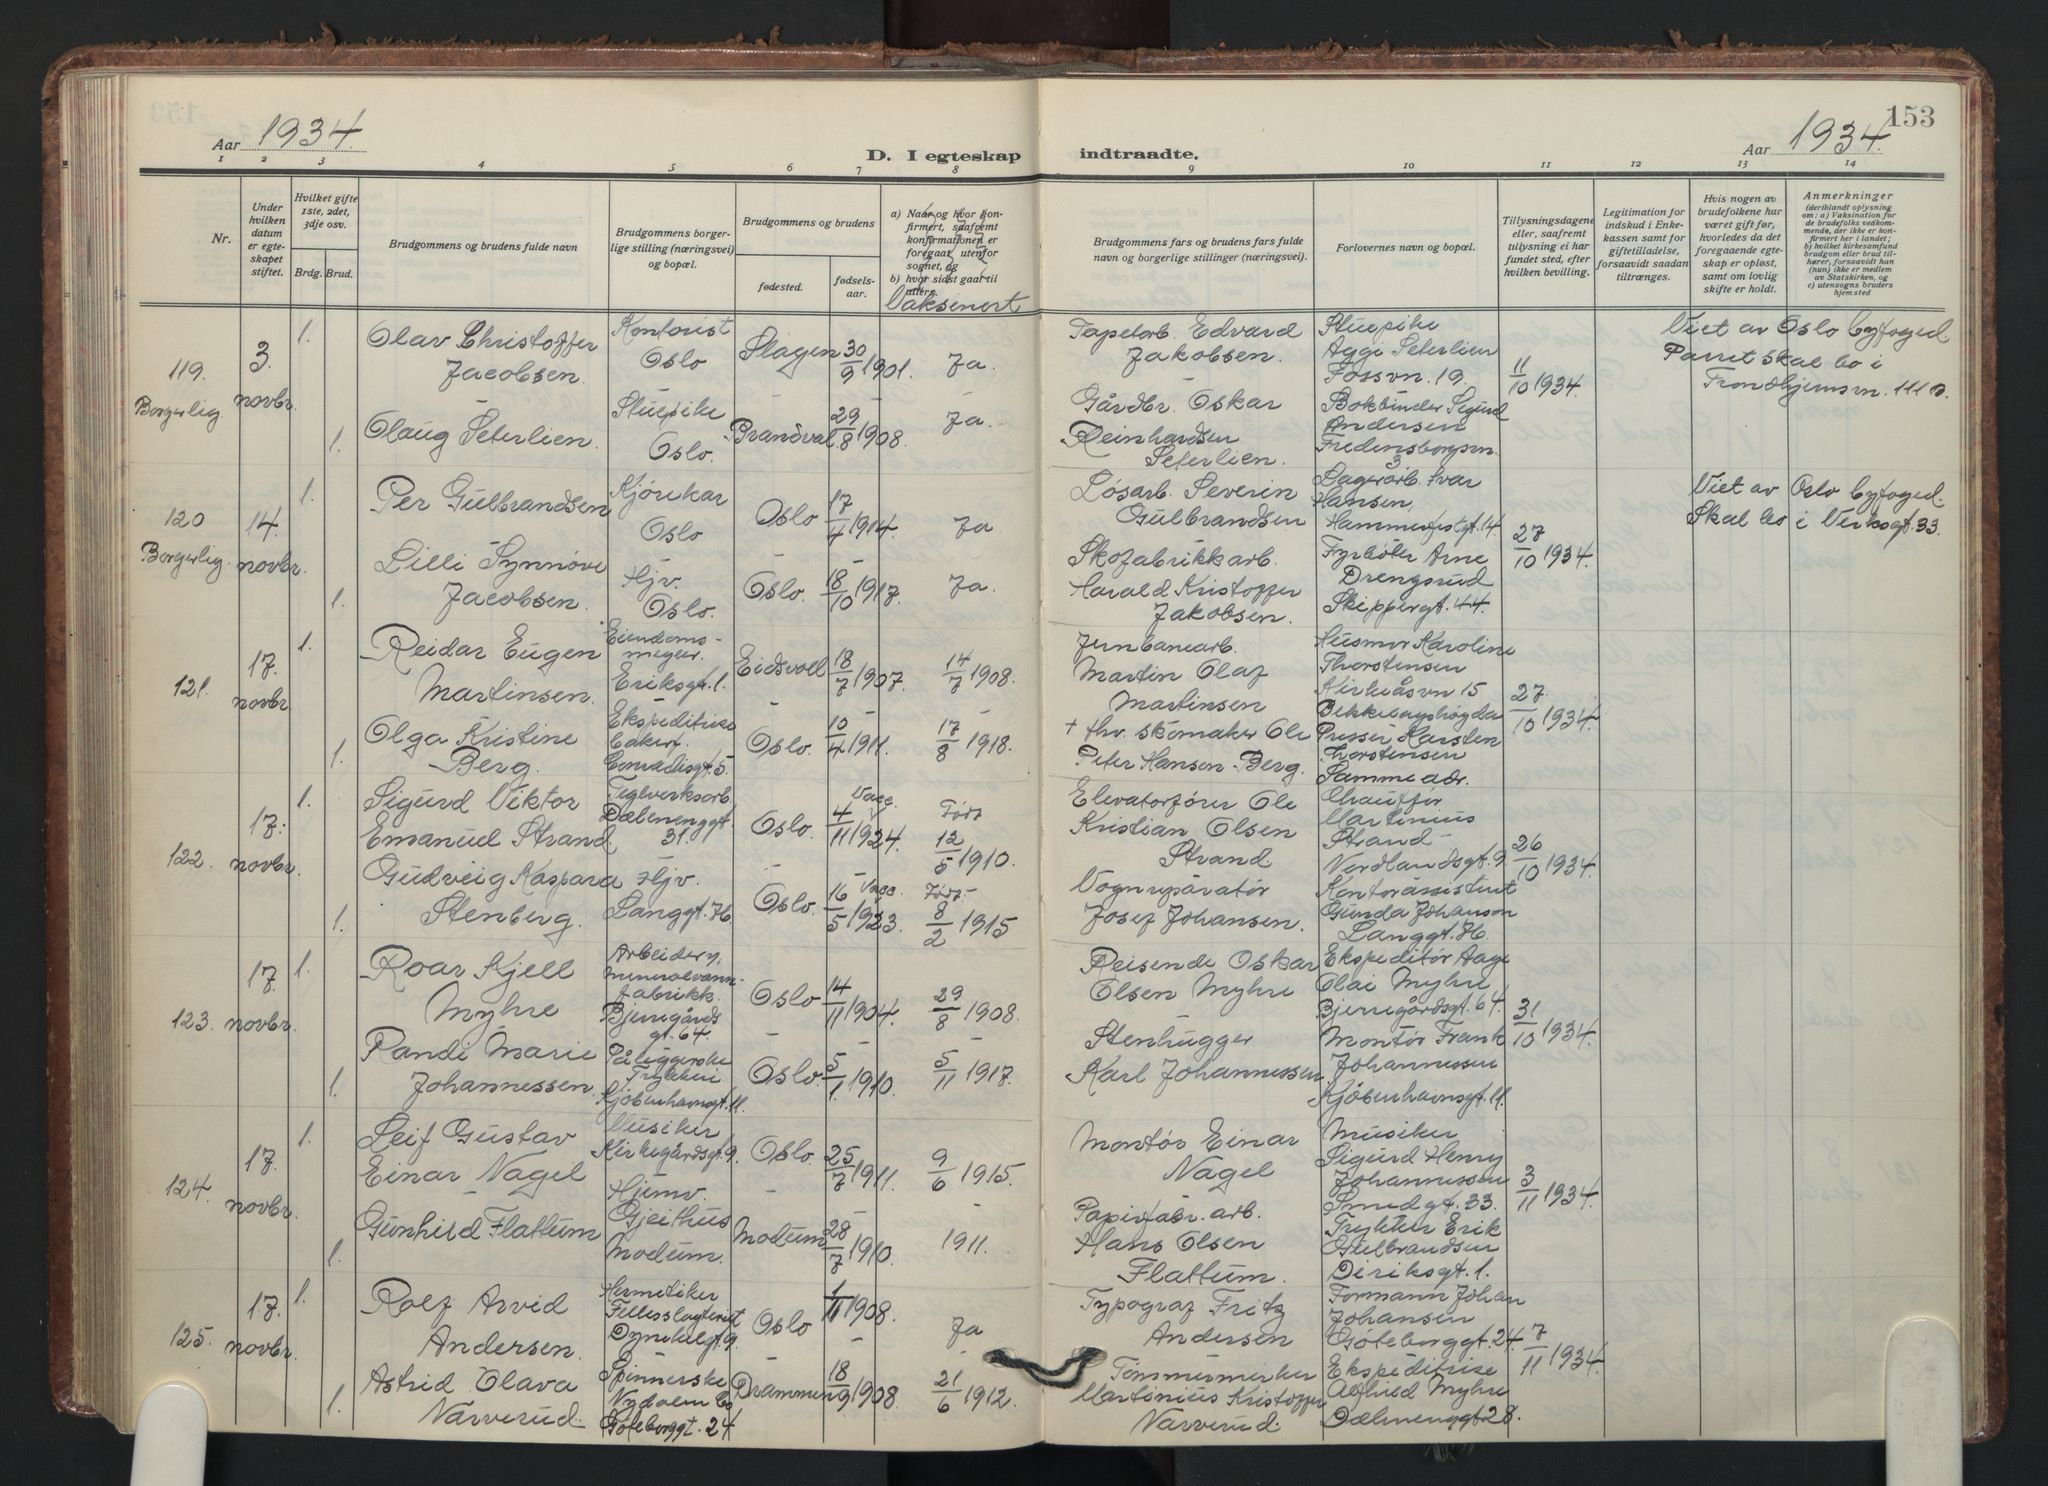 153
Aar 1934.
D. I egteskap
indtraadte.
Aar 1934.
1 2 3 4 5 6 7 8 9 10 11 12 13 14
Nr.
Under hvilken datum er egteskapet stiftet.
Hvilket gifte 1ste, 2det, 3dje osv.
Brdg. Brud.
Brudgommens og brudens fulde navn
Brudgommens borgerlige stilling (næringsvei) og bopæl.
Brudgommens og brudens
fødested.
fødselsaar.
a) Naar og hvor konfirmert, saafremt konfirmationen er foregaat utenfor sognet, og
b) hvor sidst gaat til alters.
Vaksinert
Brudgommens fars og brudens fars fulde navn og borgerlige stillinger (næringsvei).
Forlovernes navn og bopæl.
Tillysningsdagene eller, saafremt tillysning ei har fundet sted, efter hvilken bevilling.
Legitimation for indskud i Enkekassen samt for giftetilladelse, forsaavidt saadan tiltrænges.
Hvis nogen av brudefolkene har været gift før, hvorledes da det foregaaende egteskap er opløst, samt om lovlig skifte er holdt.
Anmerkninger
(deriblandt oplysning om: a) Vaksination for de brudefolks vedkommende, der ikke er konfirmert her i landet; b) hvilket kirkesamfund brudgom eller brud tilhører, forsaavidt han (hun) ikke er medlem av Statskirken, og c) utensogns bruders hjemsted
119. Borgerlig
3. novbr.
1. Olav Christoffer Jacobsen.
Kontorist Oslo
Slagen 30/9 1901. Ja.
Tapetarb. Edvard Jakobsen.
Stuepike Aggi Seterlien Fossvn. 19.
11/10 1934.
Viet av Oslo byfoged
Parret skal bo i
Trondhjemsvn. 111 D.
1. Olaug Seterlien.
Stuepike Oslo.
Brandval 29/8 1908. Ja.
Gårdbr. Oskar Reinhardsen Seterlien.
Bokbinder Sigurd Andersen Fredensborgvn. 3
120 Borgerlig.
14. novbr.
1. Per Gulbrandsen
Kjørekar Oslo
Oslo 17/4 1914. Ja
Løsarb. Severin Gulbrandsen
Lagerarb. Ivar Hansen, Hammerfestgt. 14.
27/10 1934.
Viet av Oslo byfoged.
Skal bo i Verksgt. 33.
1. Lilli Synnøve Jacobsen.
Hjv. Oslo.
Oslo. 18/10 1917. Ja.
Skofabrikkarb. Harald Kristoffer Jakobsen.
Fyrbøter Arne Drengsrud Skippergt. 44.
121.
17. novbr
1. Reidar Eugen Martinsen.
Eiendomsmegler. Eriksgt. 1.
Eidsvoll 18/7 1907. 14/7 1908.
Jernbanearb. Martin Olaf Martinsen
Husmor Karoline Thorstensen Kirkeåsvn 15 Bekkelagshøgda
27/10 1934.
1. Olga Kristine Berg.
Ekspeditrise Conradisgt. 5.
Oslo. 10/4 1911. 17/8 1918.
+ fhv. skomaker Ole Peter Hansen-Berg.
Presser Karsten Thorstensen Samme adr.
122.
17. novbr.
1. Sigurd Viktor Emanuel Strand.
Teglverksarb. Dælenenggt. 31.
Oslo. 4/11 Vacc. 1924. Født 12/5 1910.
Elevatorfører Ole Kristian Olsen Strand
Chauffør Martinius Strand Nordlandsgt. 9.
26/10 1934.
1. Gudveig Kaspara Stenberg.
Hjv. Langgt. 76.
Oslo. 16/5 Vacc. 1923. Født 8/2 1915
Vognreparatør Josef Johansen.
Kontorassistent Gunda Johanson Langgt. 76.
123.
17. novbr.
1. Roar Kjell Myhre
Arbeider v. mineralvannfabrikk. Bjerregårdsgt. 64.
Oslo 14/11 1904. 29/8 1908.
Reisende Oskar Olsen Myhre
Ekspeditør Aage Olai Myhre Bjerregårdsgt. 64.
31/10 1934.
1. Randi Marie Johannessen.
Påleggerske Trykkeri Kjøbenhavnsgt. 11.
Oslo 5/1 1910. 5/11 1917.
Stenhugger Karl Johannessen
Montør Frank Johannessen Kjøbenhavnsgt. 11.
124.
17. novbr.
1. Leif Gustav Einar Nagel
Musiker Kirkegårdsgt. 9.
Oslo. 25/7 1911. 9/6 1915.
Montør Einar Nagel
Musiker Sigurd Henry Johannessen Smedgt. 33.
3/11 1934.
1. Gunhild Flattum
Hjemv. Gjeithus Modum.
Modum 28/7 1910. 1911.
Papirfabr. arb. Hans Olsen Flattum.
Trykker Erik Gulbrandsen Diriksgt. 1.
125.
17. novbr.
1. Rolf Arvid Andersen.
Hermetiker Fellesslagteriet Dynekilgt. 9.
Oslo 1/11 1908. Ja
Typograf Fritz Andersen
Formann Johan Johansen Gøteborggt. 24.
7/11 1934.
1. Astrid Olava Narverud.
Spinnerske Nydalens Co Gøteborggt. 24
Drammen 18/9 1908. 21/6 1912.
Tømmermerker Martinius Kristoffer Narverud.
Ekspeditrise Alfhild Myhre Dælenenggt. 28.